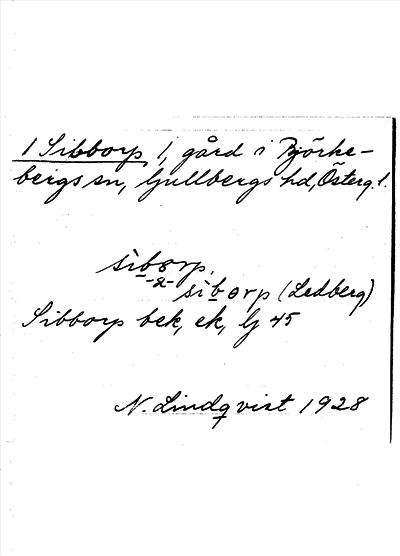 1 Sibborp 1, gård i Björke-
bergs sn, Gullbergs hd, Österg. l.
sìbɵrp,
-2-
sìbɵrp (Ledberg)
Sibborp bek, ek, lj 45
N. Lindqvist 1928